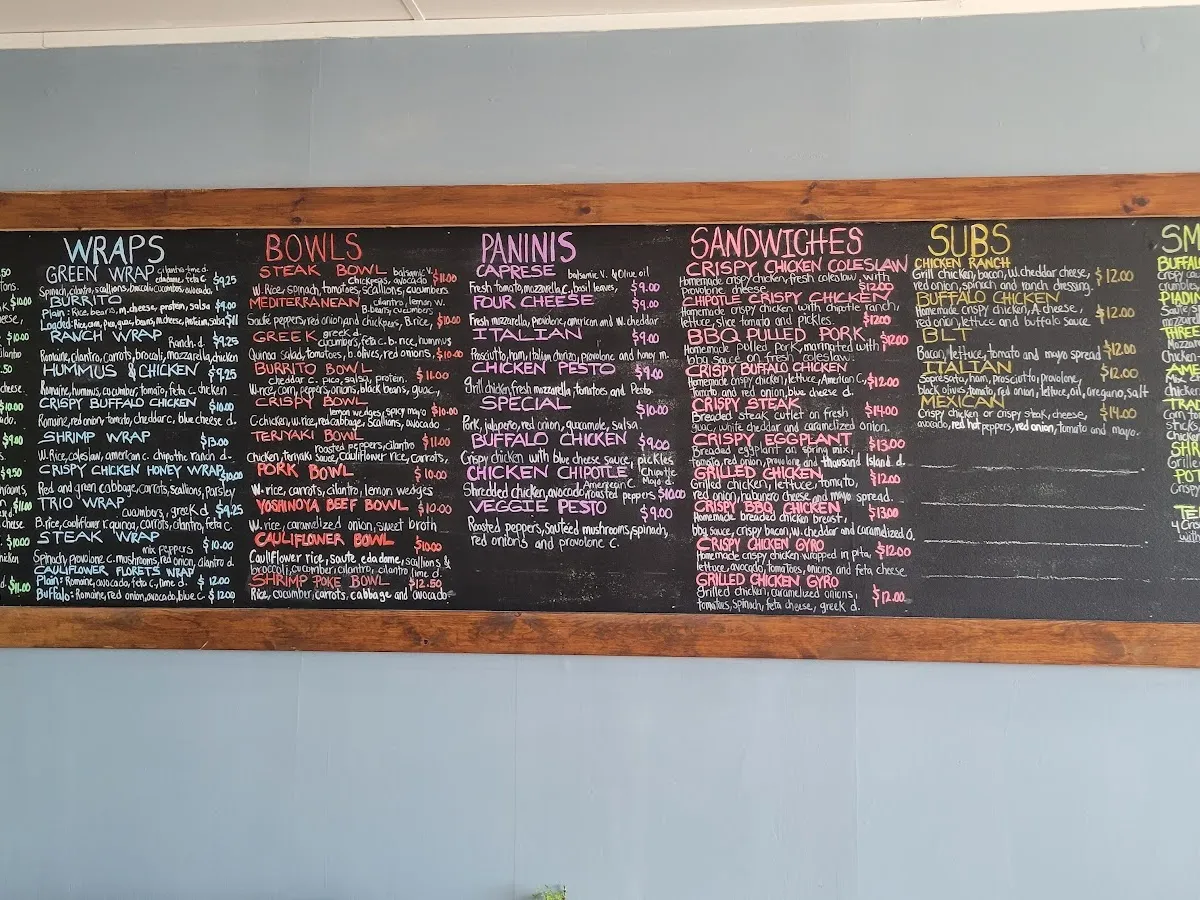 .50
$10.00
$10.00
$9.00
$9.50
$11.00
WRAPS
GREEN WRAP cilantro-lime d.
edadame, feta c. $9.25
Spinach, cilantro, scallions, broccoli, cucumbers, avocado.
BURRITO
Plain: Rice, beans, m.cheese, protein, salsa $9.00
Loaded: Rice, corn, pico, guac, beans, m.cheese, protein, salsa $11
RANCH WRAP Ranch d. $9.25
Romaine, cilantro, carrots, brocoli, mozzarella, chicken
HUMMUS & CHICKEN $9.25
Romaine, hummus, cucumber, tomato, feta c. chicken
CRISPY BUFFALO CHICKEN
Romaine, red onion, tomato, cheddar c. blue cheese d. $10.00
SHRIMP WRAP $13.00
W. Rice, coleslaw, american c. chipotle ranch d.
CRISPY CHICKEN HONEY WRAP $10.00
Red and green cabbage, carrots, scallions, Parsley
TRIO WRAP Cucumbers, greek d. $9.25
B.rice, cauliflower r. quinoa, carrots, cilantro, feta c.
STEAK WRAP mix peppers $10.00
Spinach, provolone c. mushrooms, red onion, cilantro d.
CAULIFLOWER FLORETS WRAP
Plain: Romaine, avocado, feta c., lime d. $12.00
Buffalo: Romaine, red onion, avocado, blue c. $12.00
BOWLS
STEAK BOWL balsamic v. $11.00
Chickpeas, avocado
W. Rice, spinach, tomatoes, scallions, cucumbers
MEDITERRANEAN cilantro, lemon w.
B.beans, cucumbers
Sauté peppers, red onion and chickpeas, B.rice, $10.00
GREEK greek d.
cucumbers, feta c. b. rice, hummus
Quinoa salad, tomatoes, b. olives, red onions, $10.00
BURRITO BOWL
cheddar c. pico, salsa, protein. $11.00
W.rice, corn, peppers, onions, black beans, guac,
CRISPY BOWL
lemon wedges, spicy mayo $10.00
C.chicken, w. rice, red cabbage, scallions, avocado
TERIYAKI BOWL $11.00
roasted peppers, cilantro
Chicken, teriyaki sauce, cauliflower rice, carrots,
PORK BOWL $10.00
W. rice, carrots, cilantro, lemon wedges
YOSHINOYA BEEF BOWL $10.00
W. rice, caramelized onion, sweet broth
CAULIFLOWER BOWL $10.00
Cauliflower rice, saute edadome, scallions &
broccoli, cucumber, cilantro, cilantro lime d.
SHRIMP POKE BOWL $12.50
Rice, cucumber, carrots, cabbage and avocado
PANINIS
CAPRESE balsamic v. & Olive oil
Fresh tomato, mozzarella c., basil leaves, $9.00
FOUR CHEESE $9.00
Fresh mozzarella, provolone, american and w. cheddar
ITALIAN $9.00
Prosciutto, ham, italian chorizo, provolone and honey m.
CHICKEN PESTO $9.00
Grill chicken, fresh mozzarella, tomatoes and Pesto
SPECIAL $10.00
Pork, jalapeño, red onion, guacamole, salsa.
BUFFALO CHICKEN $9.00
Crispy chicken with blue cheese sauce, pickles
CHICKEN CHIPOTLE, Chipotle
American C. Mayo d.
Shredded chicken, avocado, roasted peppers $10.00
VEGGIE PESTO $9.00
Roasted peppers, sauteed mushrooms, spinach,
red onions and provolone c.
SANDWICHES
CRISPY CHICKEN COLESLAW
Homemade crispy chicken, fresh coleslaw, with
provolone cheese $12.00
CHIPOTLE CRISPY CHICKEN
Homemade crispy chicken with chipotle ranch,
lettuce, slice tomato and pickles. $12.00
BBQ PULLED PORK
Homemade pulled pork, marinated with $12.00
bbq sauce on fresh coleslaw.
CRISPY BUFFALO CHICKEN
Homemade crispy chicken, lettuce, American C., $12.00
tomato and red onion, blue cheese d.
CRISPY STEAK $14.00
Breaded steak cutlet on fresh
guac, white cheddar and caramelized onion.
CRISPY EGGPLANT $13.00
Breaded eggplant on spring mix,
tomato, red onion, provolone and thousand island d.
GRILLED CHICKEN
Grilled chicken, lettuce, tomato, $12.00
red onion, habanero cheese and mayo spread.
CRISPY BBQ CHICKEN $13.00
Homemade breaded chicken breast,
bbq sauce, crispy bacon, w. cheddar and caramelized o.
CRISPY CHICKEN GYRO
Homemade crispy chicken wrapped in pita, $12.00
lettuce, avocado, tomatoes, onions and feta cheese
GRILLED CHICKEN GYRO
Grilled chicken, caramelized onions, $12.00
tomatoes, spinach, feta cheese, greek d.
SUBS
CHICKEN RANCH
Grill chicken, bacon, w. cheddar cheese, $12.00
red onion, spinach and ranch dressing.
BUFFALO CHICKEN
Homemade crispy chicken, A. cheese, $12.00
red onion, lettuce and buffalo sauce
BLT $12.00
Bacon, lettuce, tomato and mayo spread
ITALIAN $12.00
Sopresata, ham, prosciutto, provolone,
black olives, tomato, red onion, lettuce, oil, oregano, salt
MEXICAN $14.00
Crispy chicken or crispy steak, cheese,
avocado, red hot peppers, red onion, tomato and mayo.
SM
BUFFAL